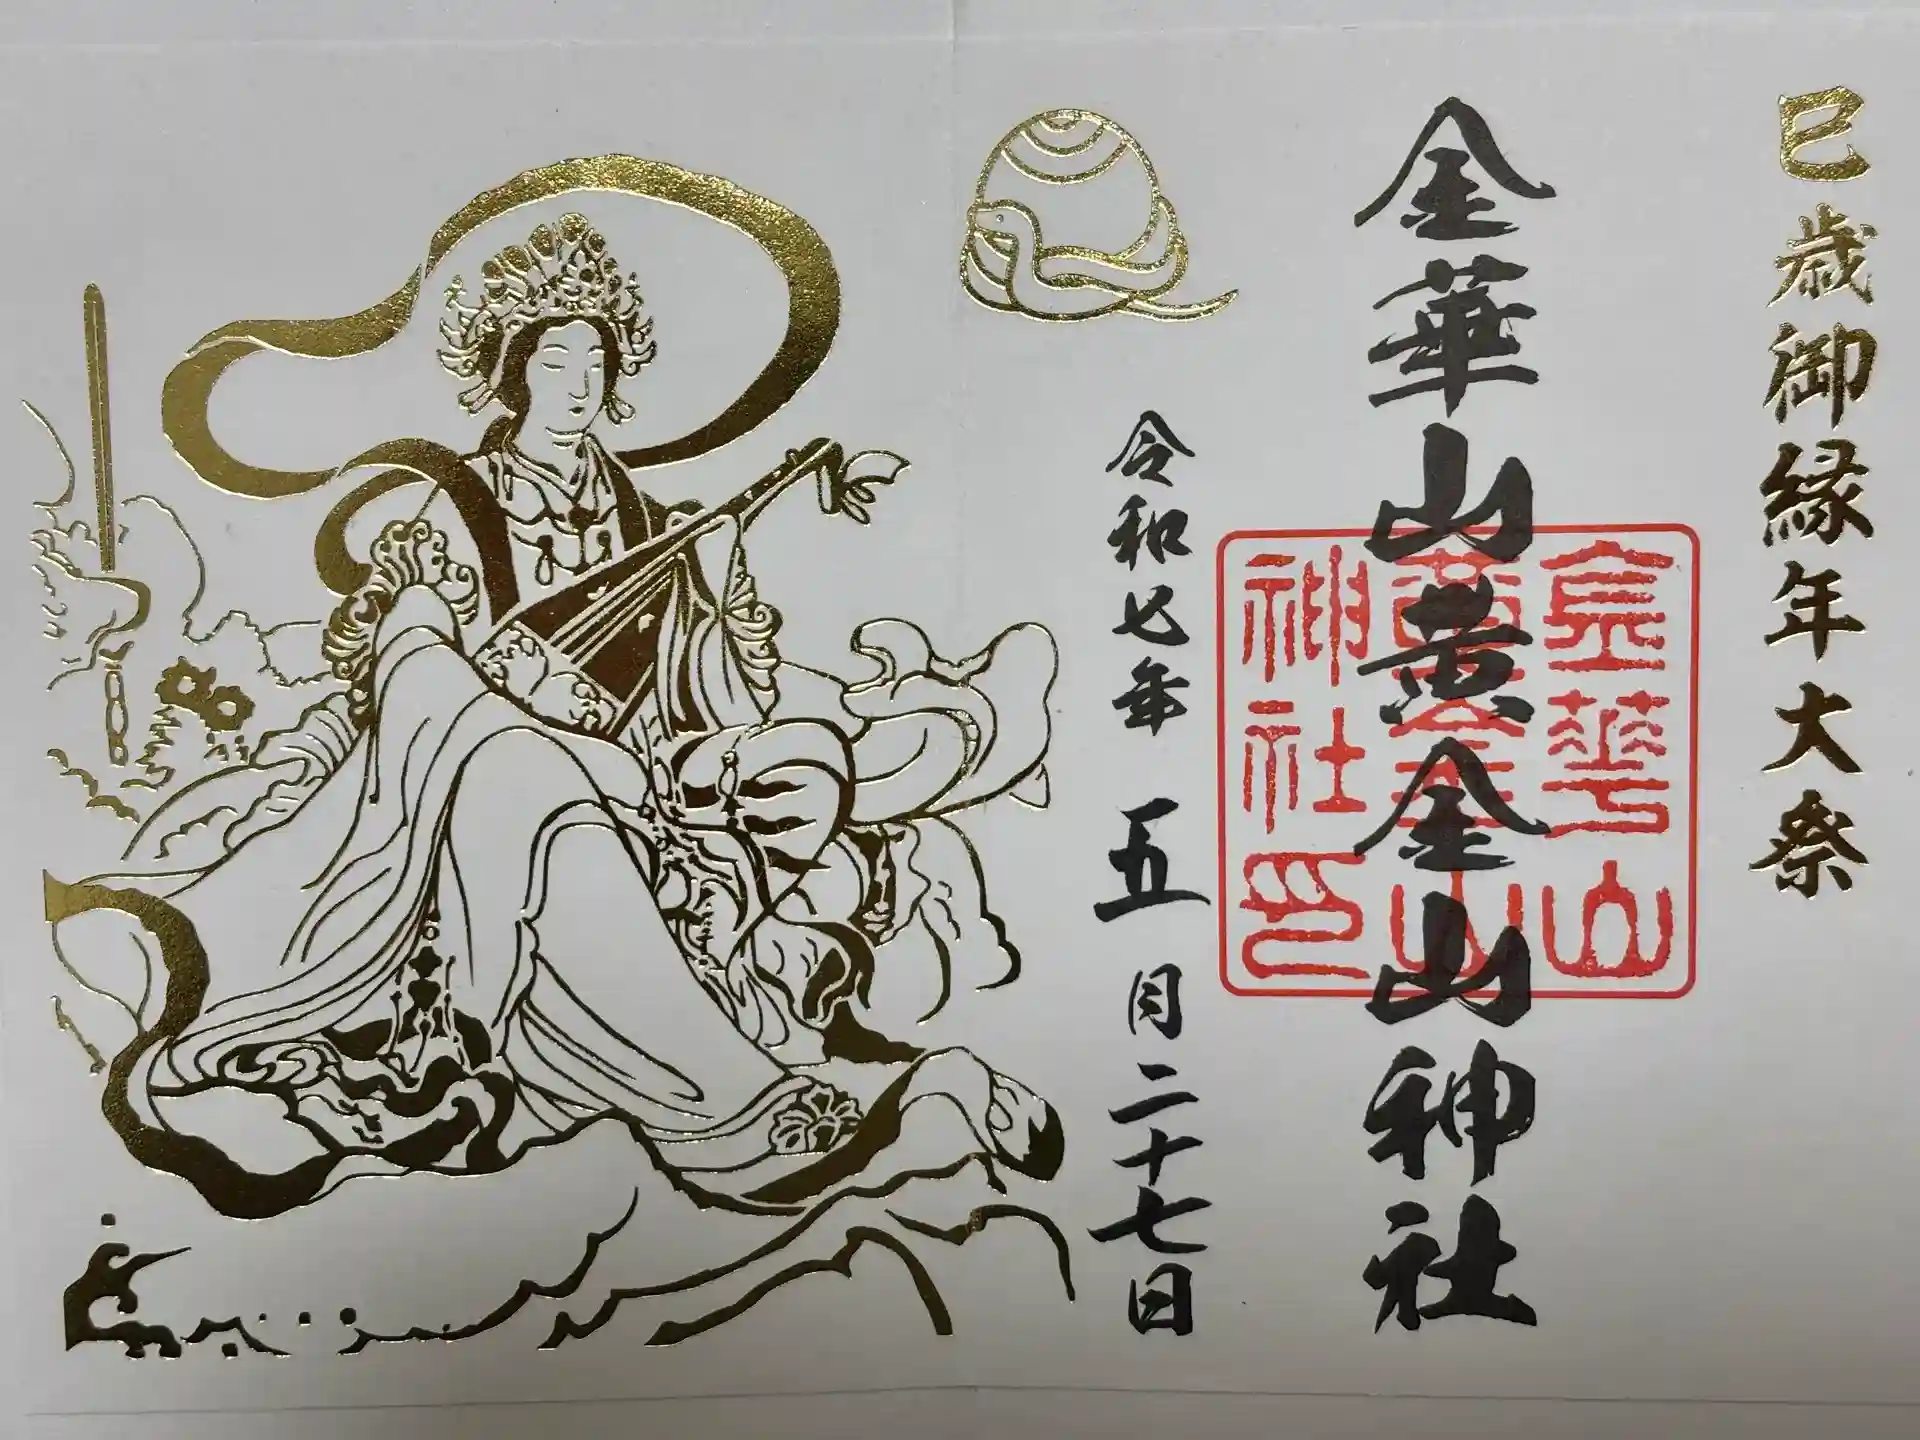 巳歳御縁年大祭
金華山黄金山神社
金華山
黄金山
神社印
令和七年 五月二十七日